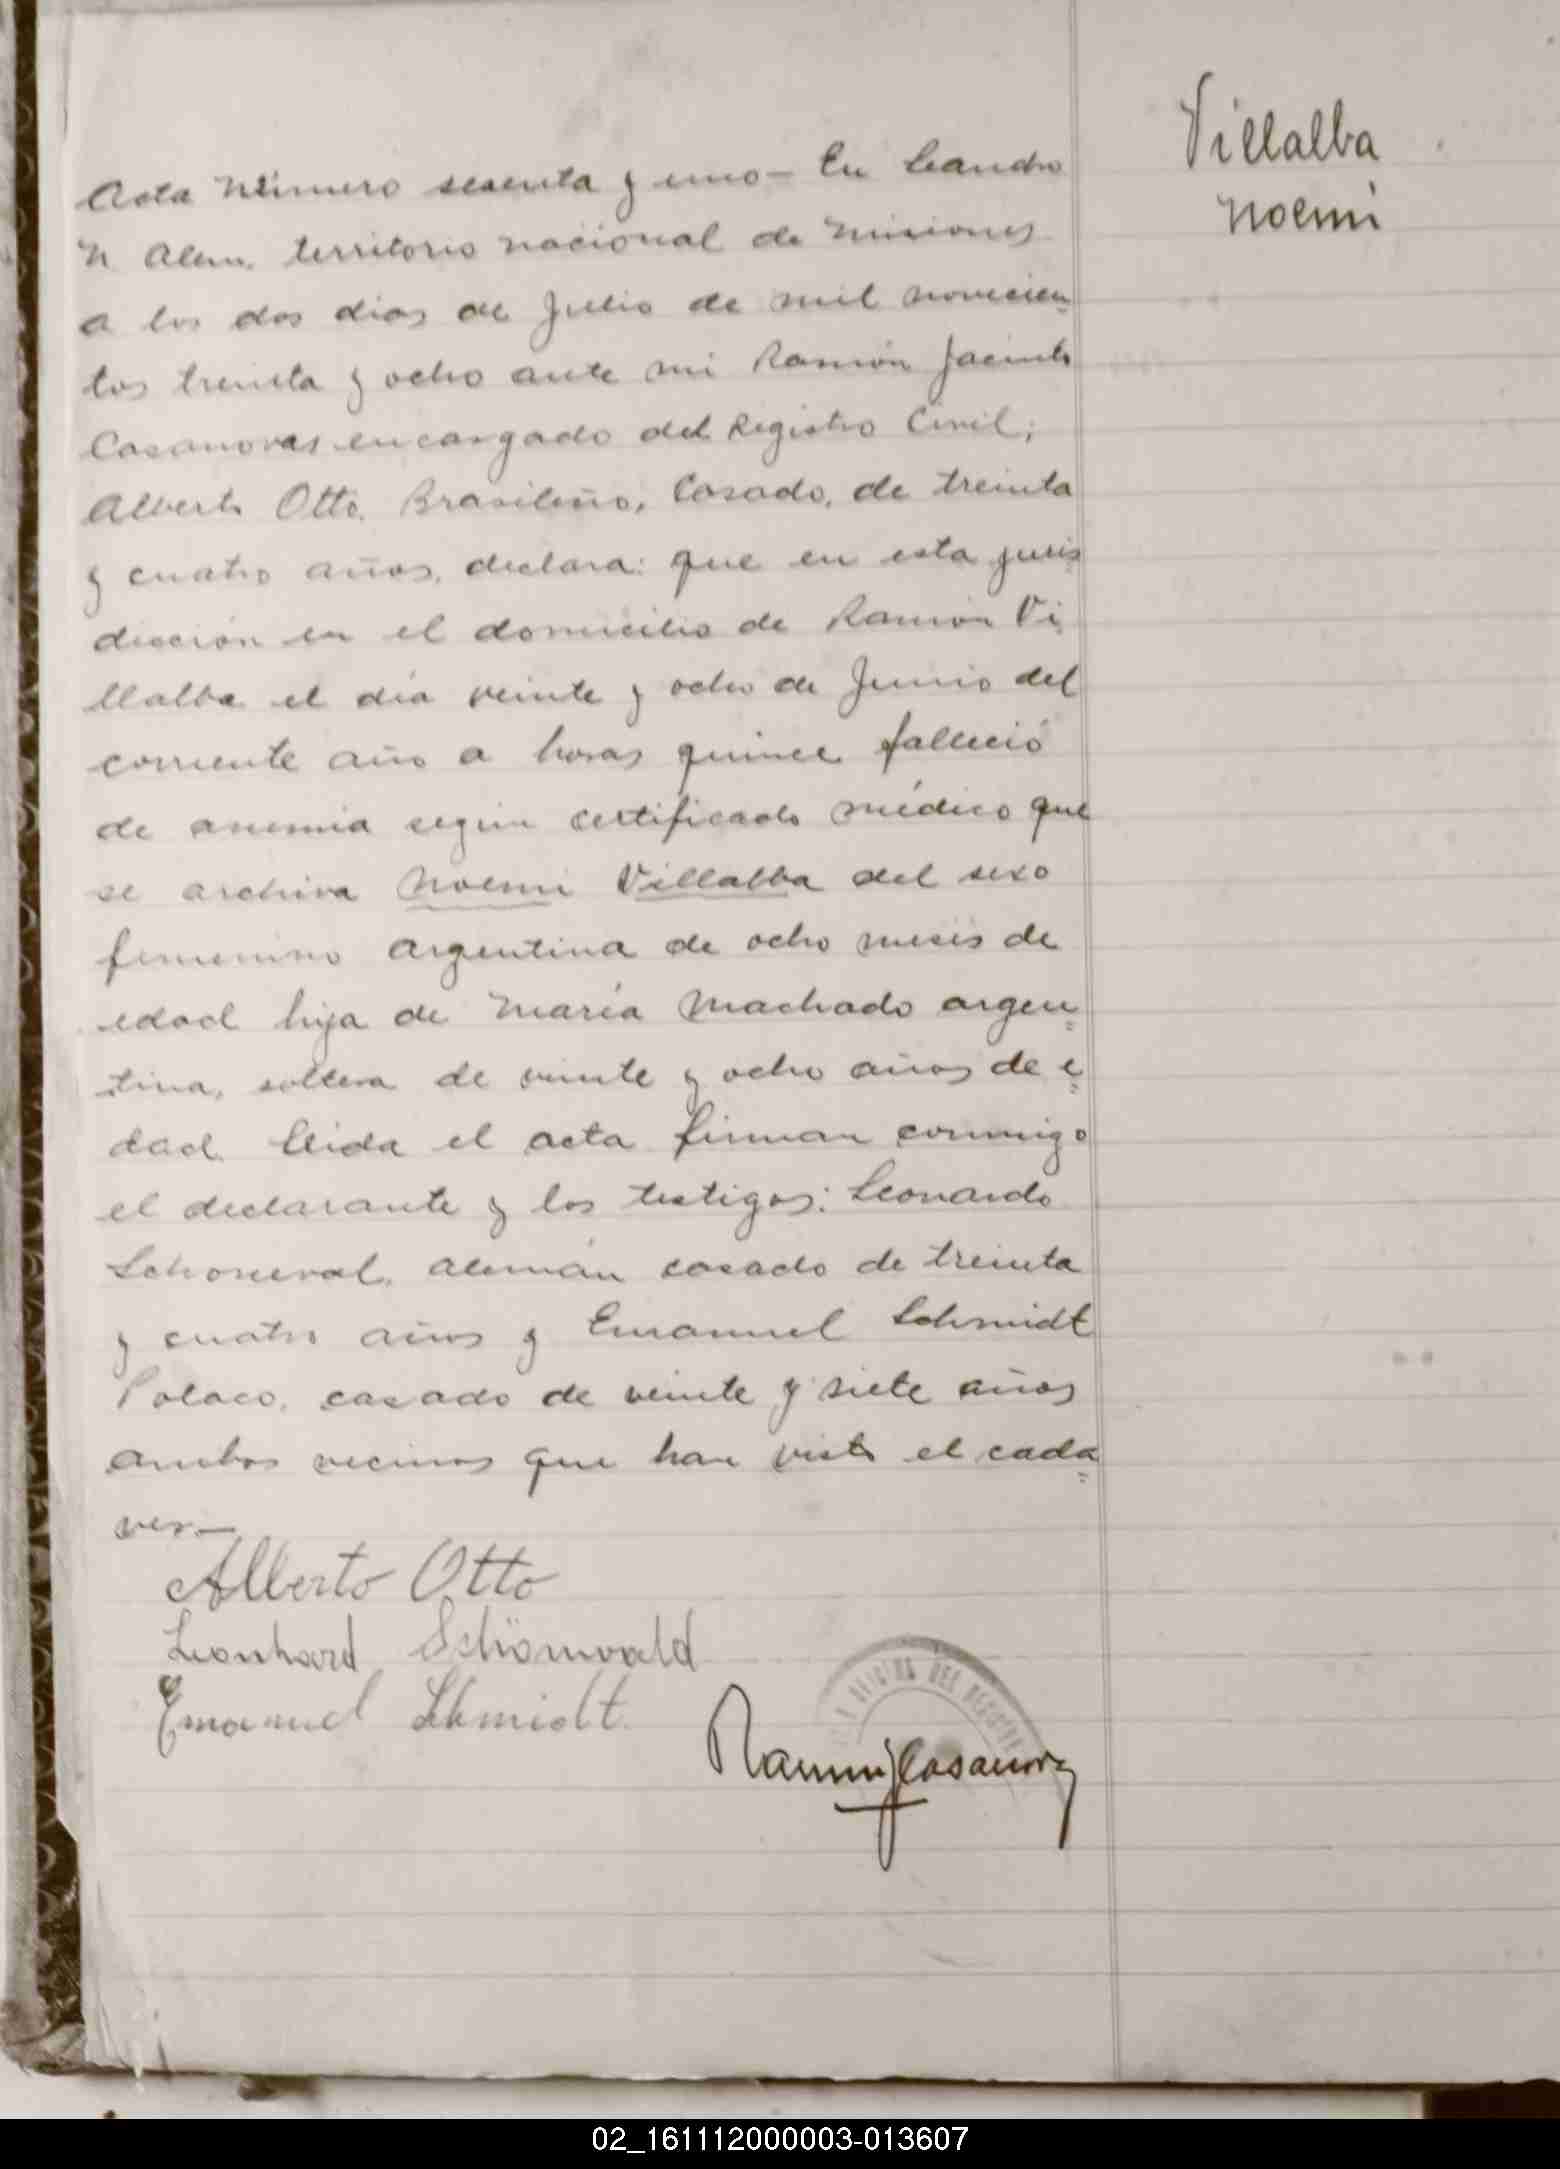 Villalba
Noemi
Acta Número sesenta y uno - En Leandro
N. Alem, territorio nacional de Misiones
a los dos dias de Julio de mil novecien
tos treinta y ocho ante mi Ramón Jacinto
Casanovas encargado del Registro Civil;
Alberto Otto, Brasileño, Casado, de treinta
y cuatro años, declara: que en esta juris
dicción en el domicilio de Ramón Vi
llalba el día veinte y ocho de Junio del
corriente año a horas quince falleció
de anemia según certificado médico que
se archiva Noemi Villalba del sexo
femenino argentina de ocho meses de
edad hija de María Machado argen
tina, soltera de veinte y ocho años de e
dad. Leida el acta firman conmigo
el declarante y los testigos: Leonardo
Schoneval, alemán casado de treinta
y cuatro años y Emanuel Schmidt
Polaco, casado de veinte y siete años
ambos vecinos que han visto el cada
ver.—
Alberto Otto
Leonhard Schönwald
Emanuel Schmidt.
OFICINA DEL REGISTRO
Ramón J Casanova
02_161112000003-013607